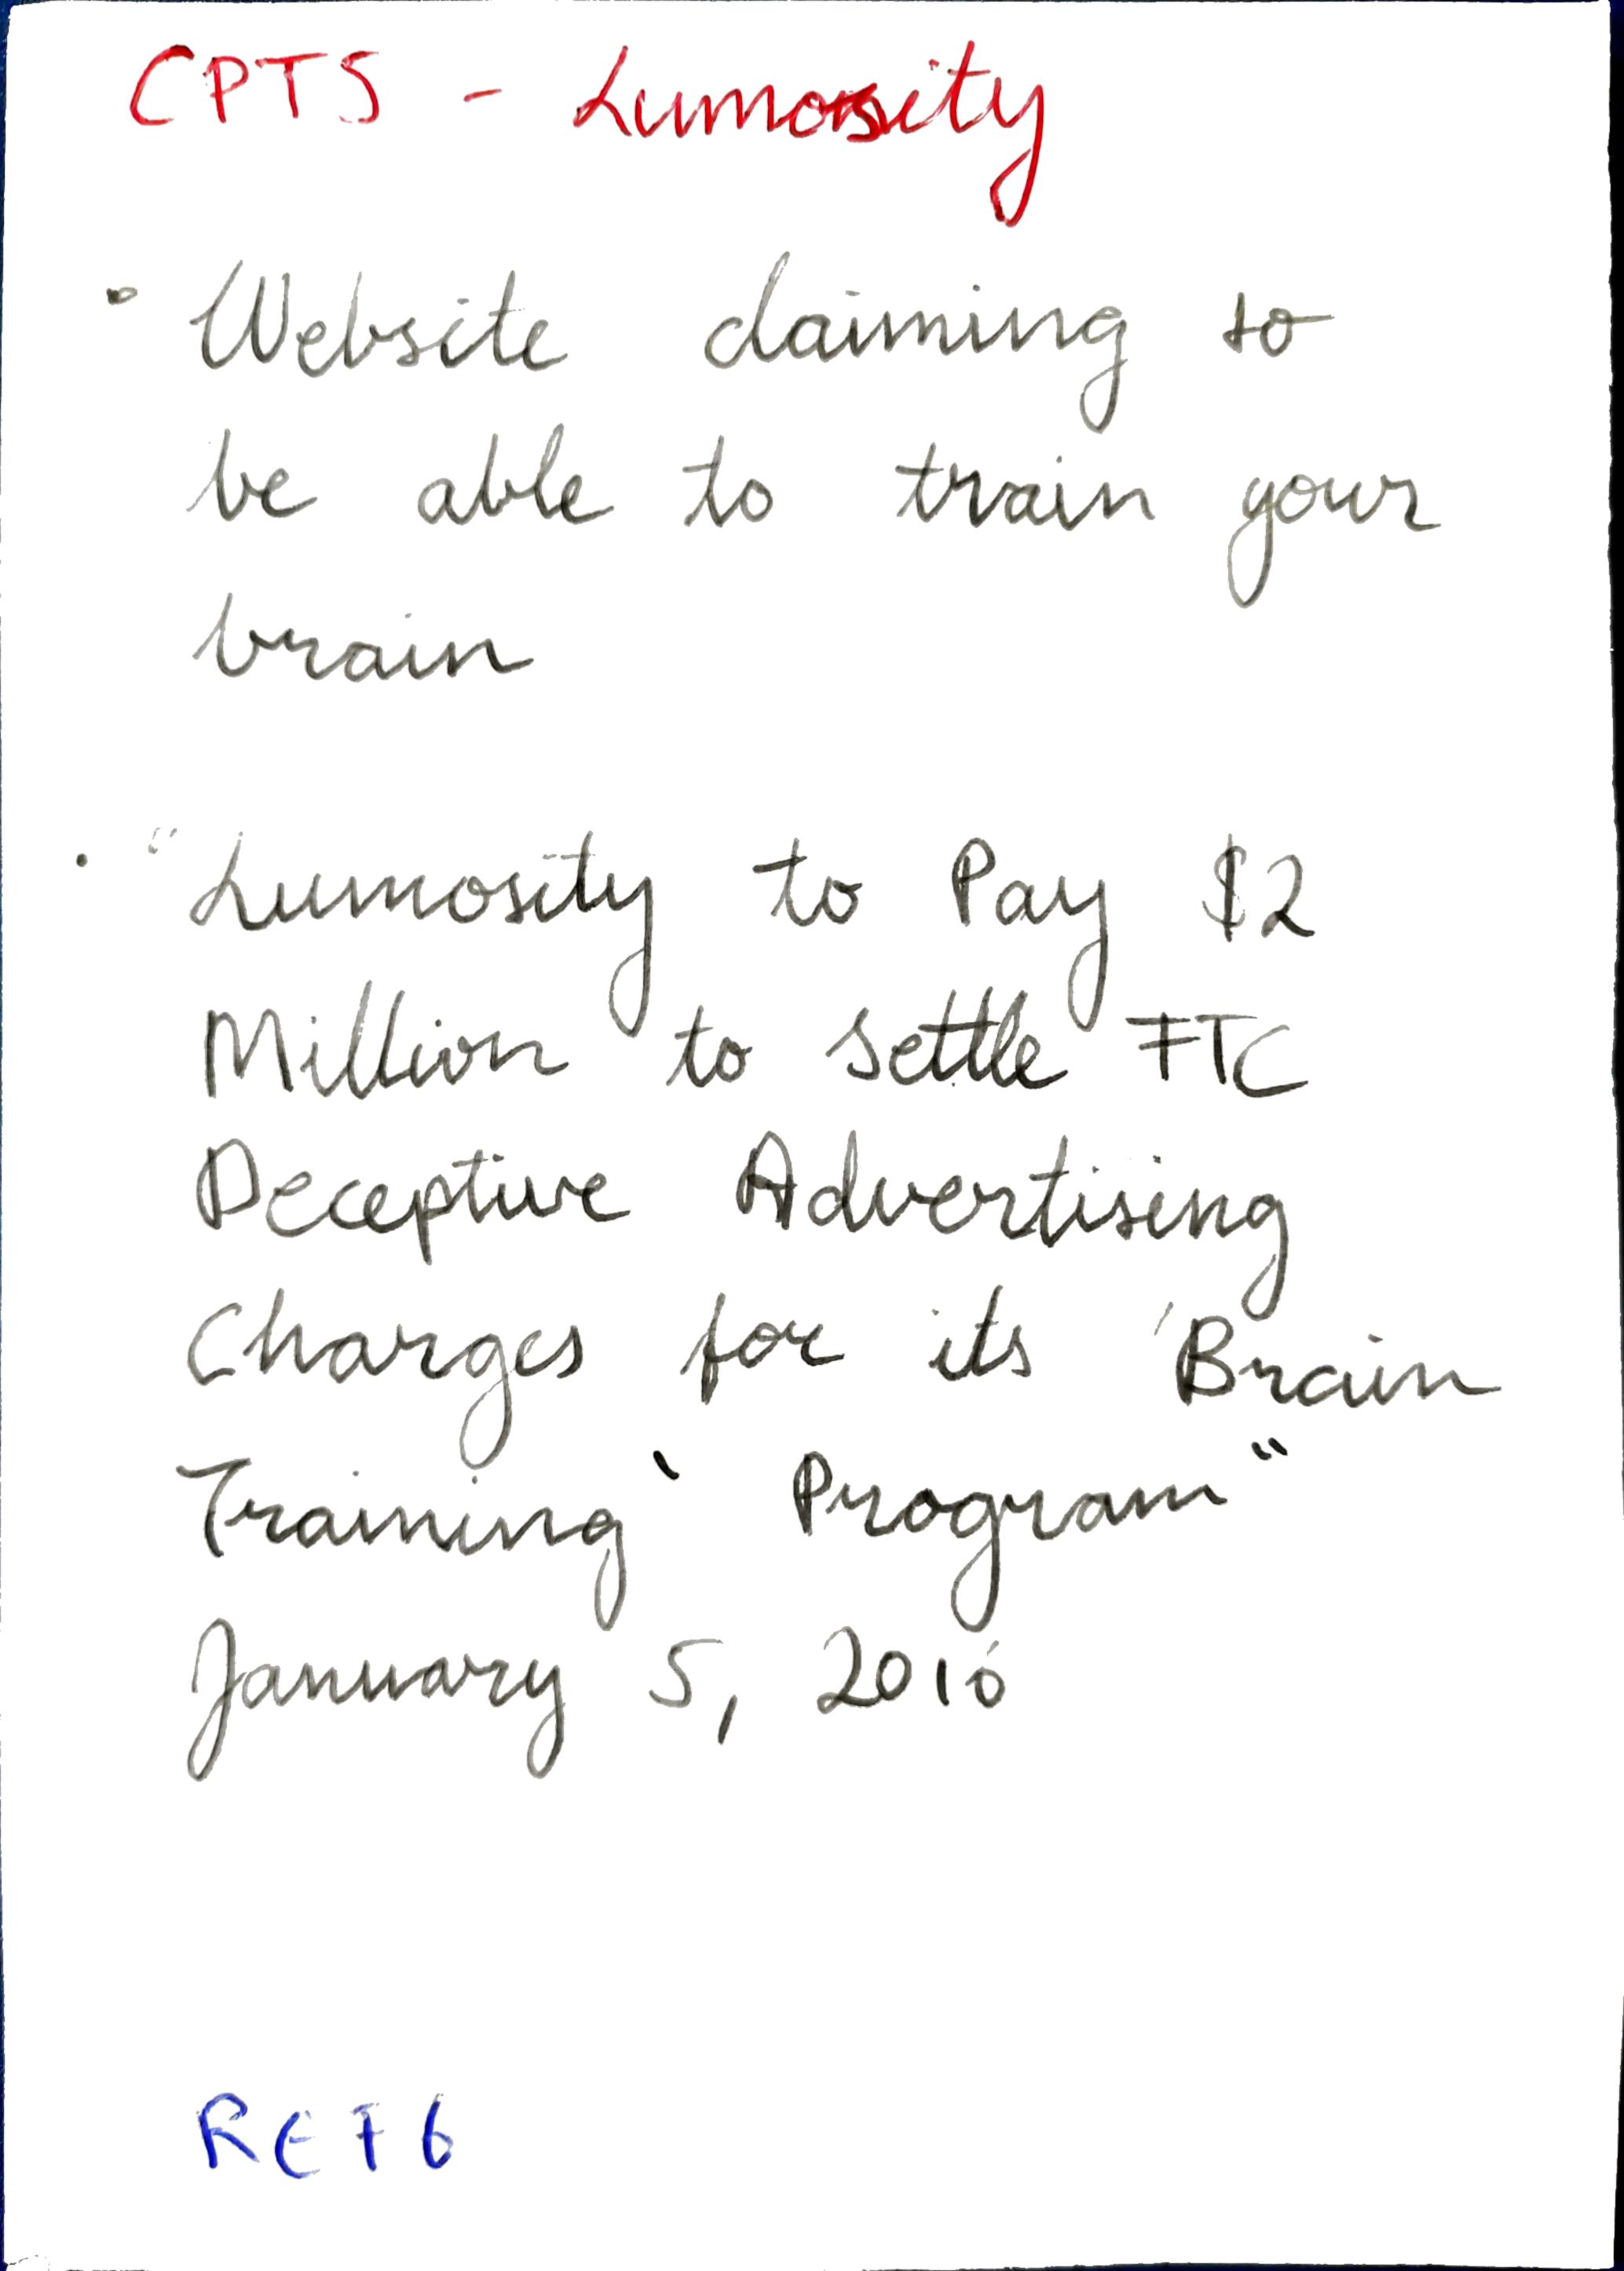 CPTS - Lumosity
• Website claiming to
be able to train your
brain
• "Lumosity to Pay $2
Million to settle FTC
Deceptive Advertising
Charges for its 'Brain
Training' Program"
January 5, 2016
REF 6